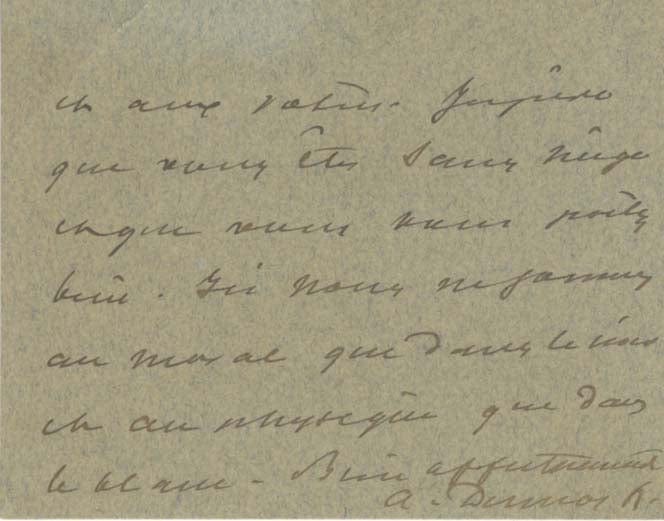 et aux vôtres. J'espère
que vous êtes sans neige
et que vous vous portez
bien. Ici nous ne sommes
au moral que dans le noir
et au physique que dans
le blanc - Bien affectueusement
A. Dumas